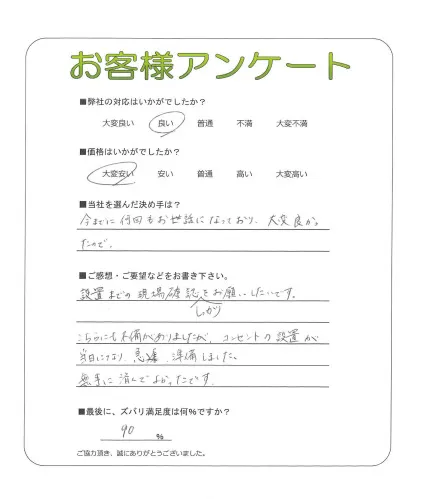 お客様アンケート
■弊社の対応はいかがでしたか？
大変良い 良い 普通 不満 大変不満
■価格はいかがでしたか？
大変安い 安い 普通 高い 大変高い
■当社を選んだ決め手は？
今までに何回もお世話になっており、大変良かっ
たので。
■ご感想・ご要望などをお書き下さい。
設置までの現場確認をお願いしたいです。
しっかり
こちらにも不備がありましたが、コンセントの設置が
当日になり、急遽、準備しました。
無事に済んでよかったです。
■最後に、ズバリ満足度は何%ですか？
90 %
ご協力頂き、誠にありがとうございました。